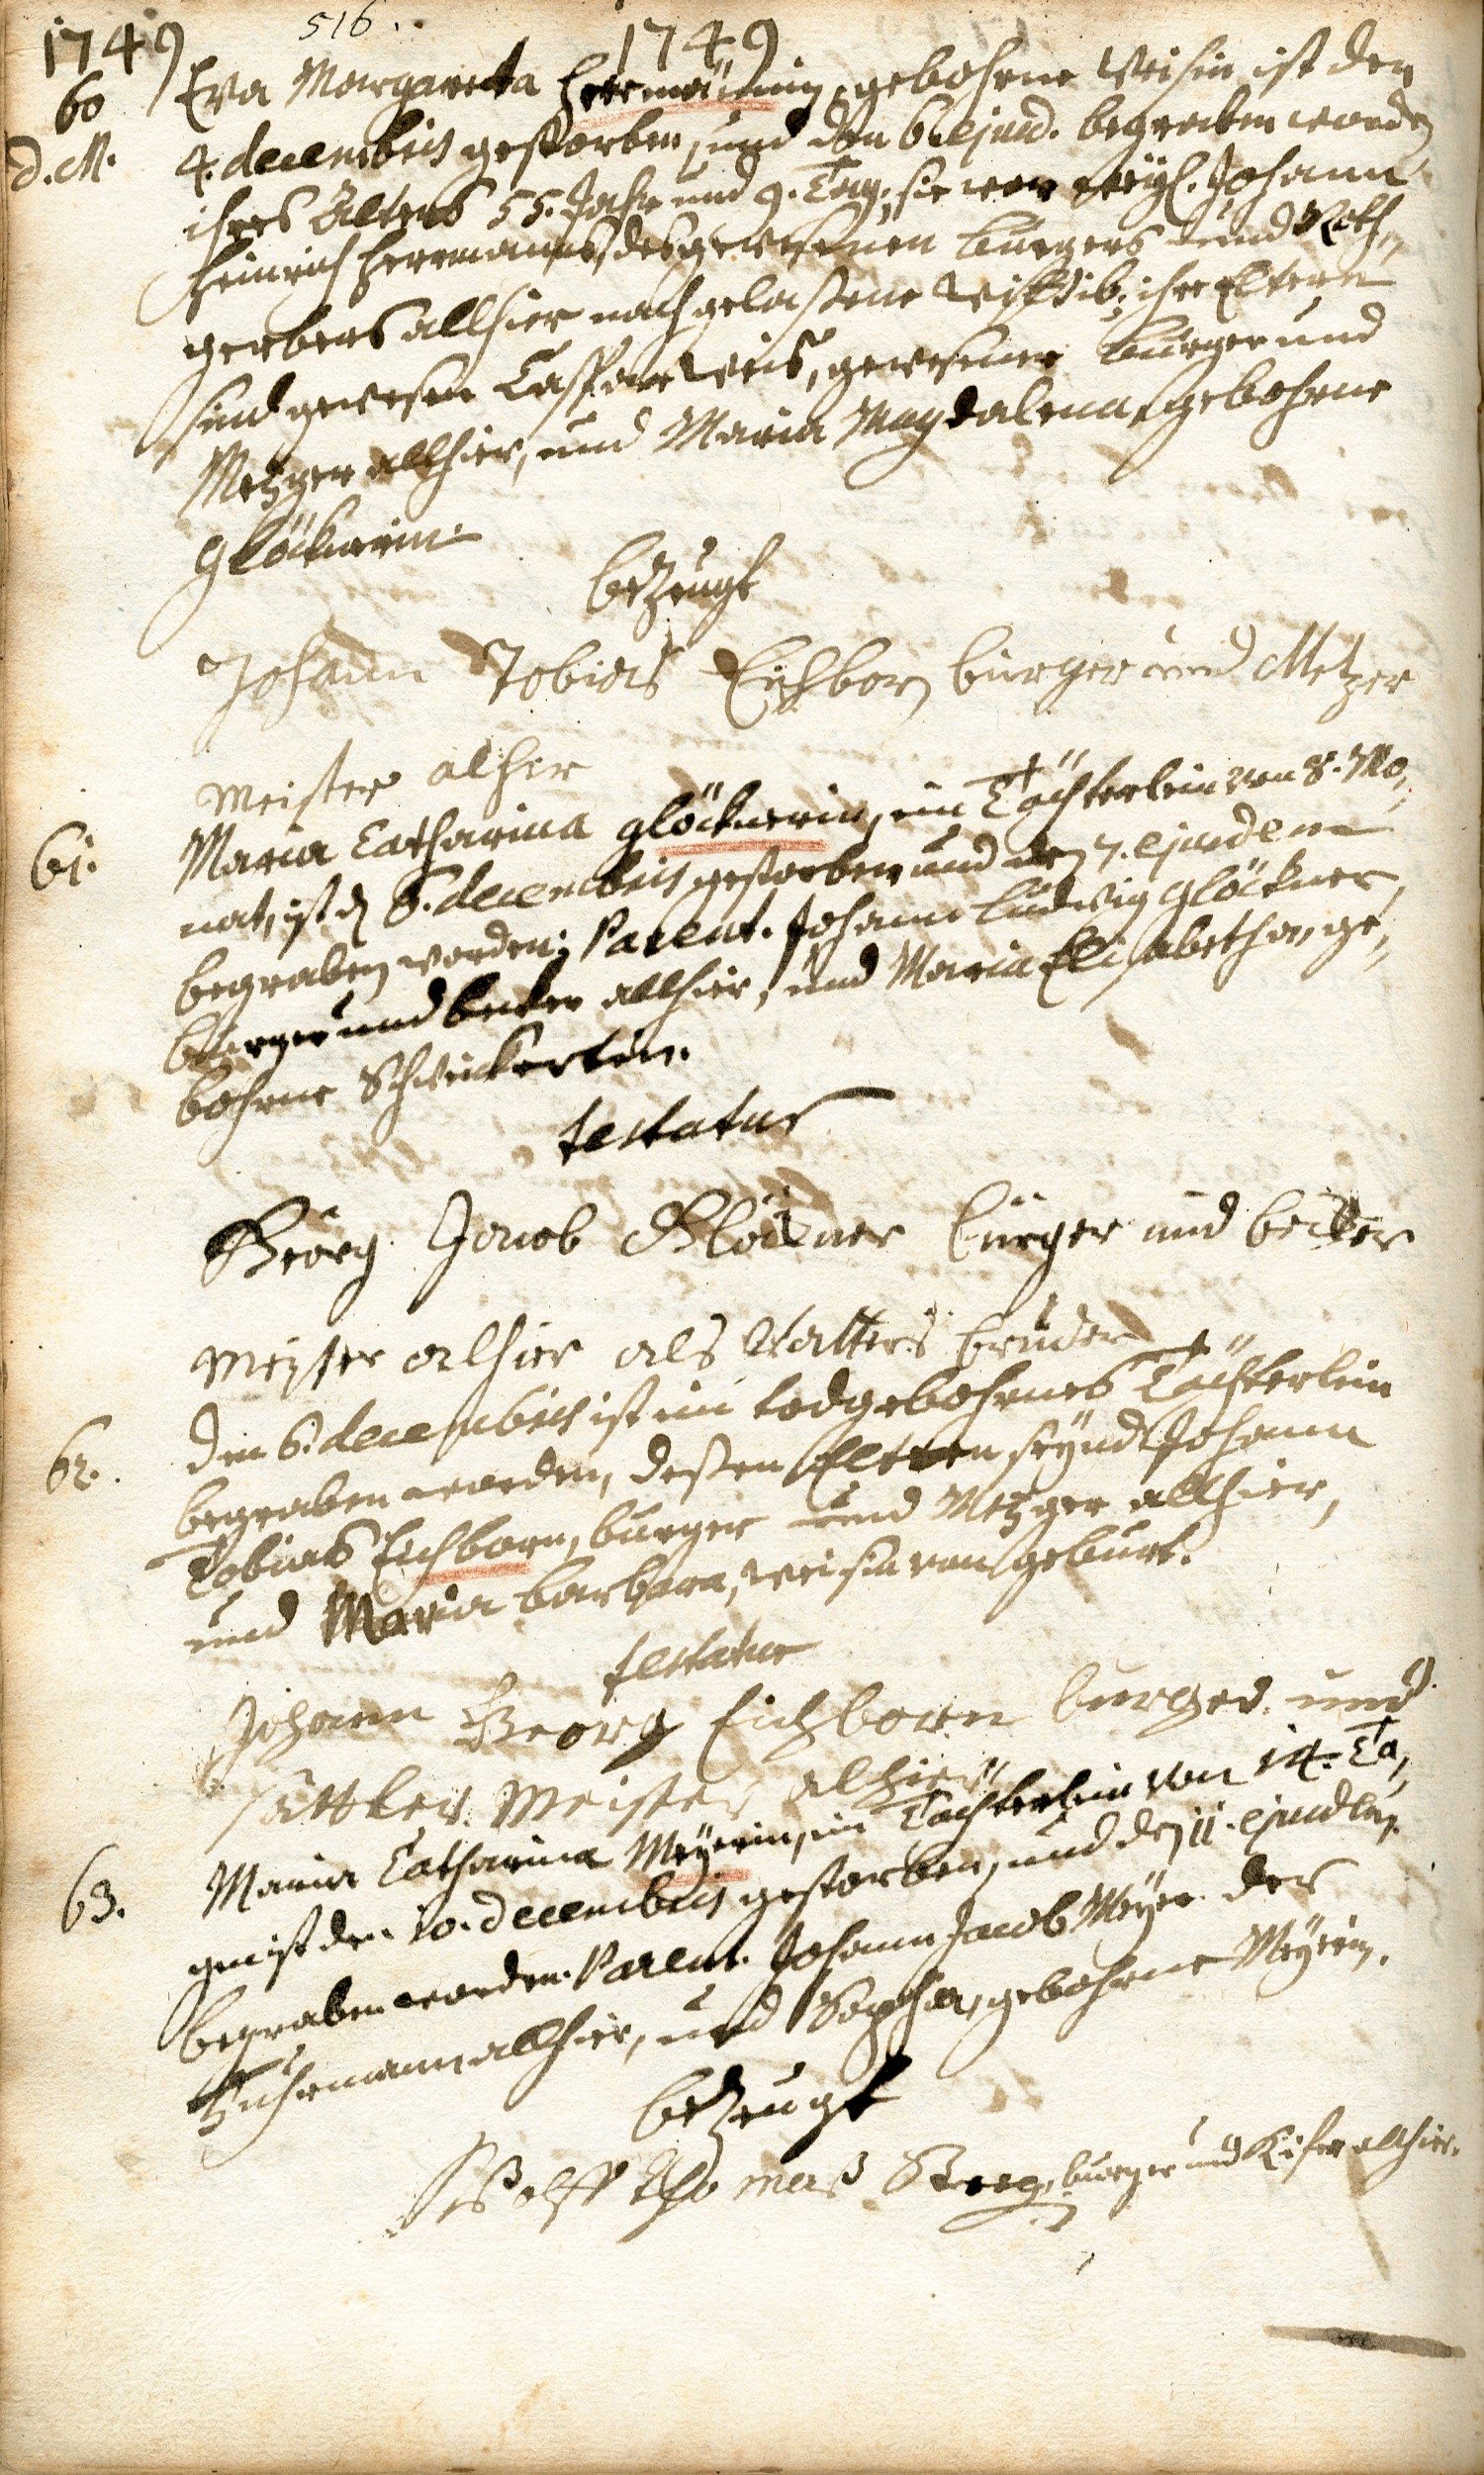 516.
1749 1749
60 Eva Margareta Herrmännin, gebohrne Weisin ist den
d. M. 4. decembris gestorben, und den 6. ejusd. begraben worden,
ihres Alters 55. Jahr und 9. Tag; sie war weyl. Johann
Heinrich Herrmanns, des gewesenen burgers und Roth-
gerbers allhier nachgelaßene Wittib; ihre Eltern
sind gewesen Casper Weis, gewesener burger und
Metzger allhier, und Maria Magdalena, gebohrne
Glöcknerin.
bezeugt
Johann Tobias Eichborn burger und Metzer
Meister alhier
61. Maria Catharina Glöcknerin, ein Töchterlein von 8. Mo-
nat, ist d. 6. decembris gestorben und den 7. ejusdem
begraben worden; Parent. Johann Ludwig Glöckner,
burger und becker allhier, und Maria Elisabetha, ge-
bohrne Schweickertin.
testatur
Georg Jacob Glöckner burger und becker
Meister alhier als Vatters bruder
62. den 6. decembris ist ein todgebohrnes Töchterlein
begraben worden, deßen Eltern seynd Johann
Tobias Eichborn, burger und Metzger allhier,
und Maria barbara, Weisin von geburt.
testatur
Johann Georg Eichborn burger und
sattler Meister alhier
63. Maria Catharina Meyerin, ein Töchterlein von 14. Ta-
gen ist den 10. decembris gestorben, und den 11. ejusdem
begraben worden. Parent. Johann Jacob Meyer der
Fuhrmann allhier, und Sophia, gebohrne Meyerin.
bezeugt
Wolff Thomas Steeg, burger und Kiefer allhier.